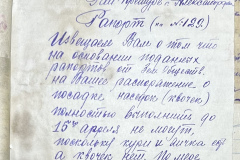 Рапорт (на №129.)
Извещаем Вам о том что
на основании поданых
рапортов от
на Ваше распоряжение о
посадке наседок (квочек)
полностью выполнить до
15го апреля не могут,
поскольку куры и яички еда
а квочек нет